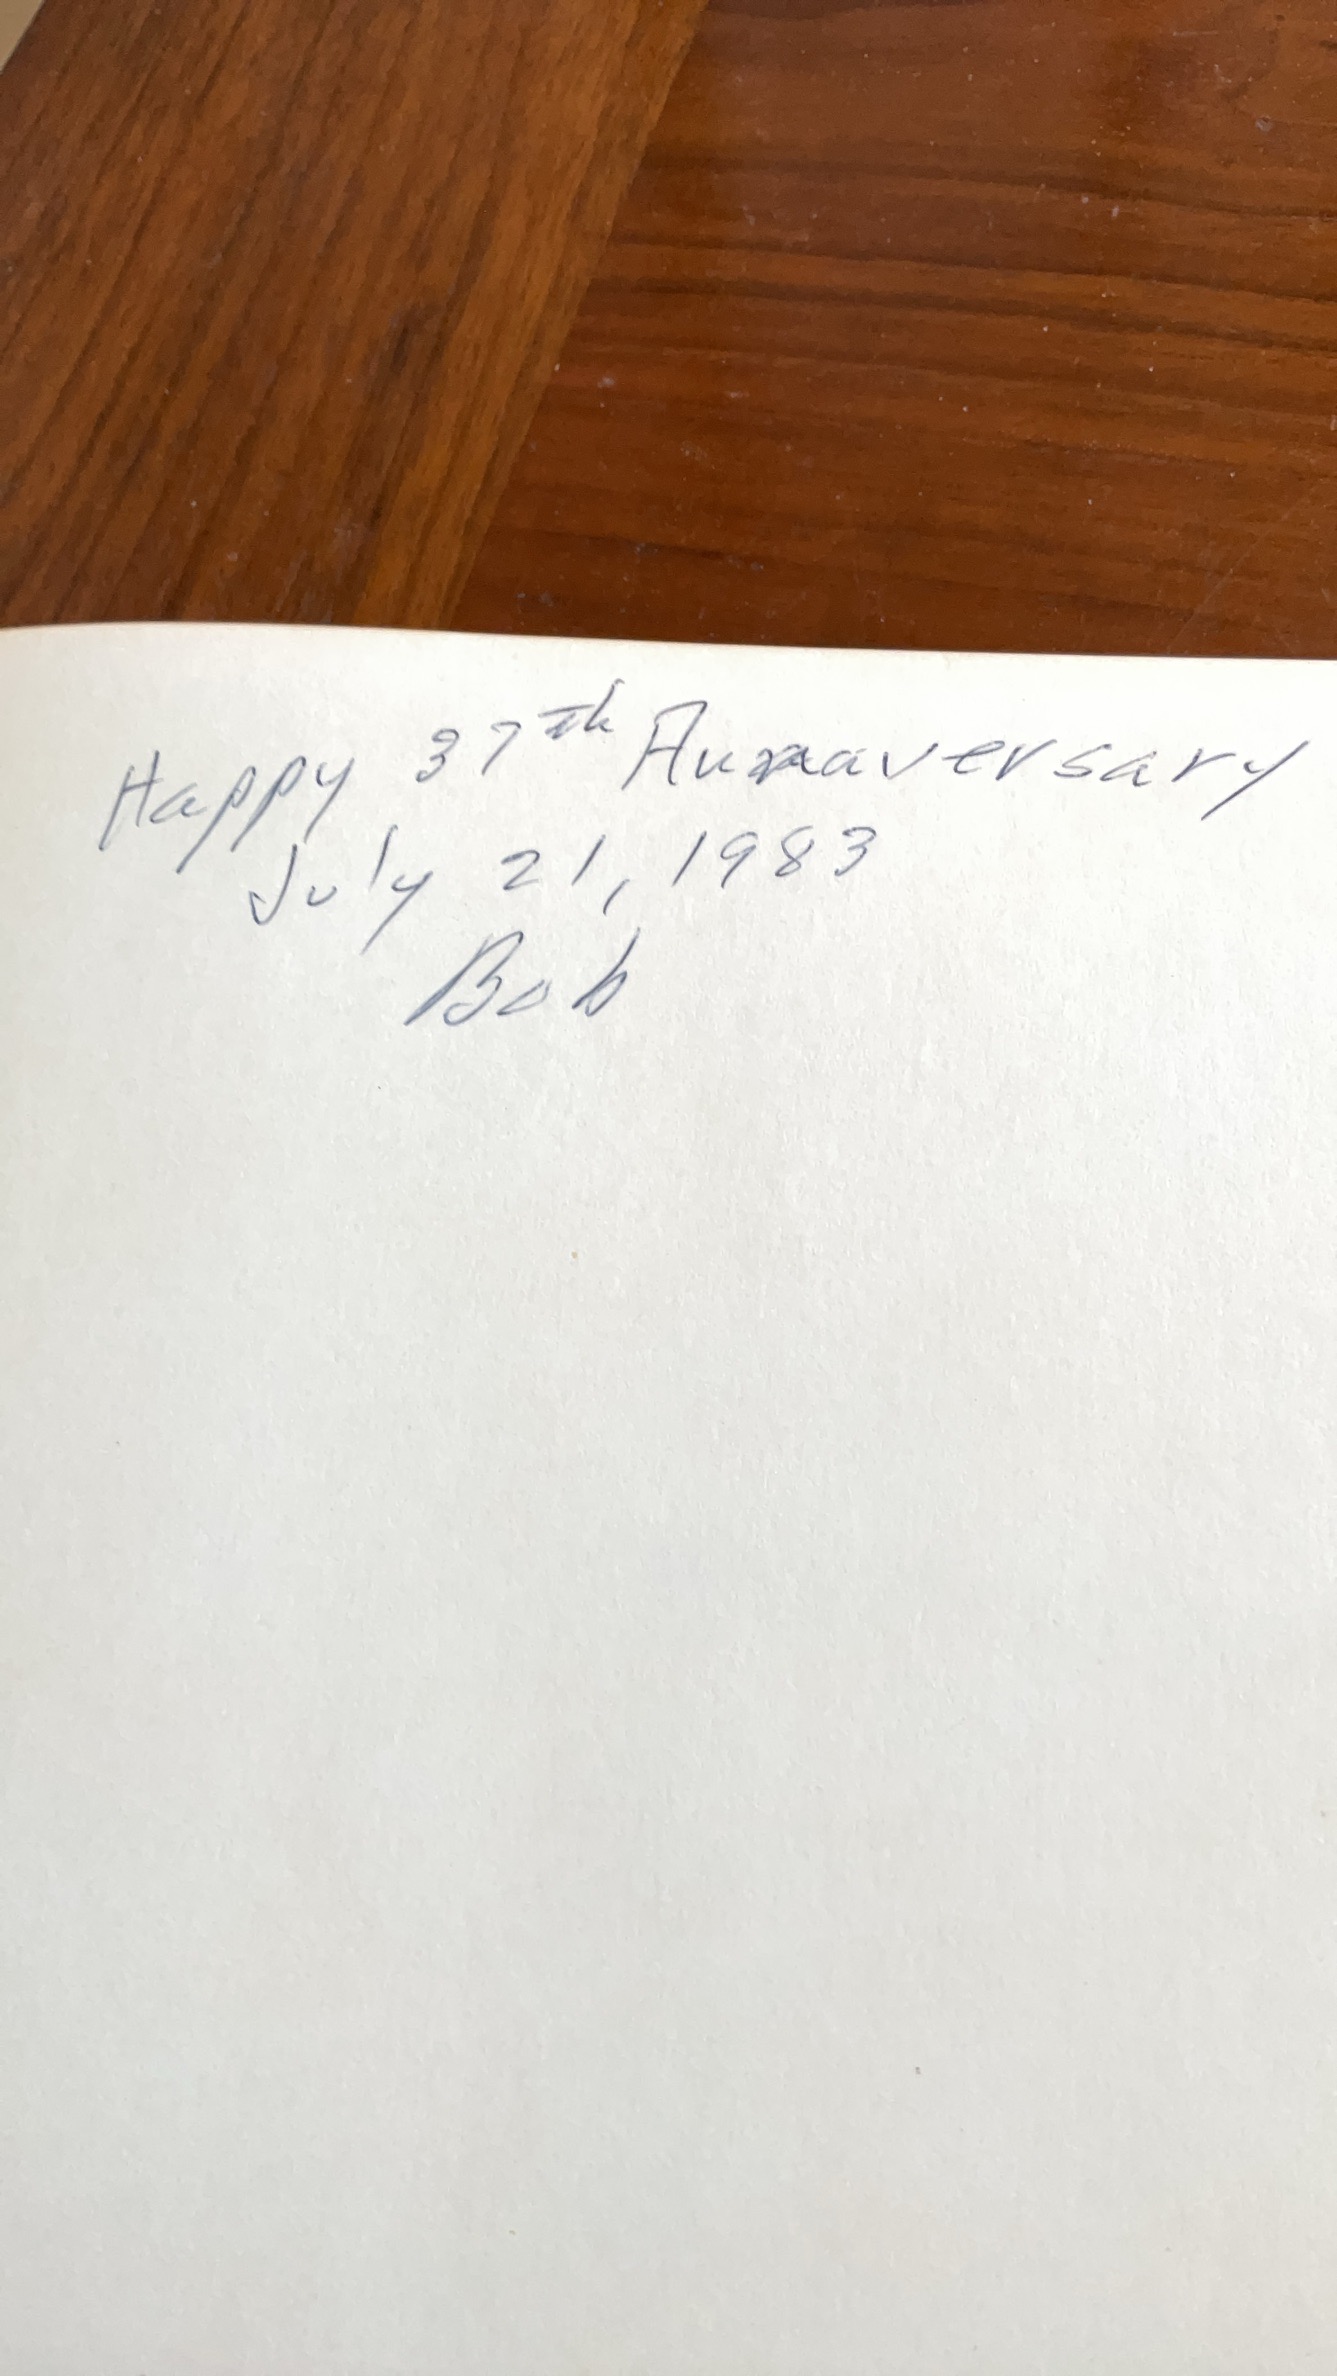 Happy 37th Annaversary
July 21, 1983
Bob